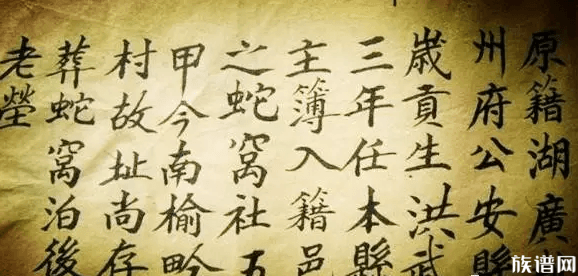 原籍湖廣
州府公安縣
歲貢生洪武
三年任本縣
主簿入籍邑
之蛇窩社五
甲今南榆疃
村故址尚存
葬蛇窩泊後
老塋
族谱网
www.zupu.cn